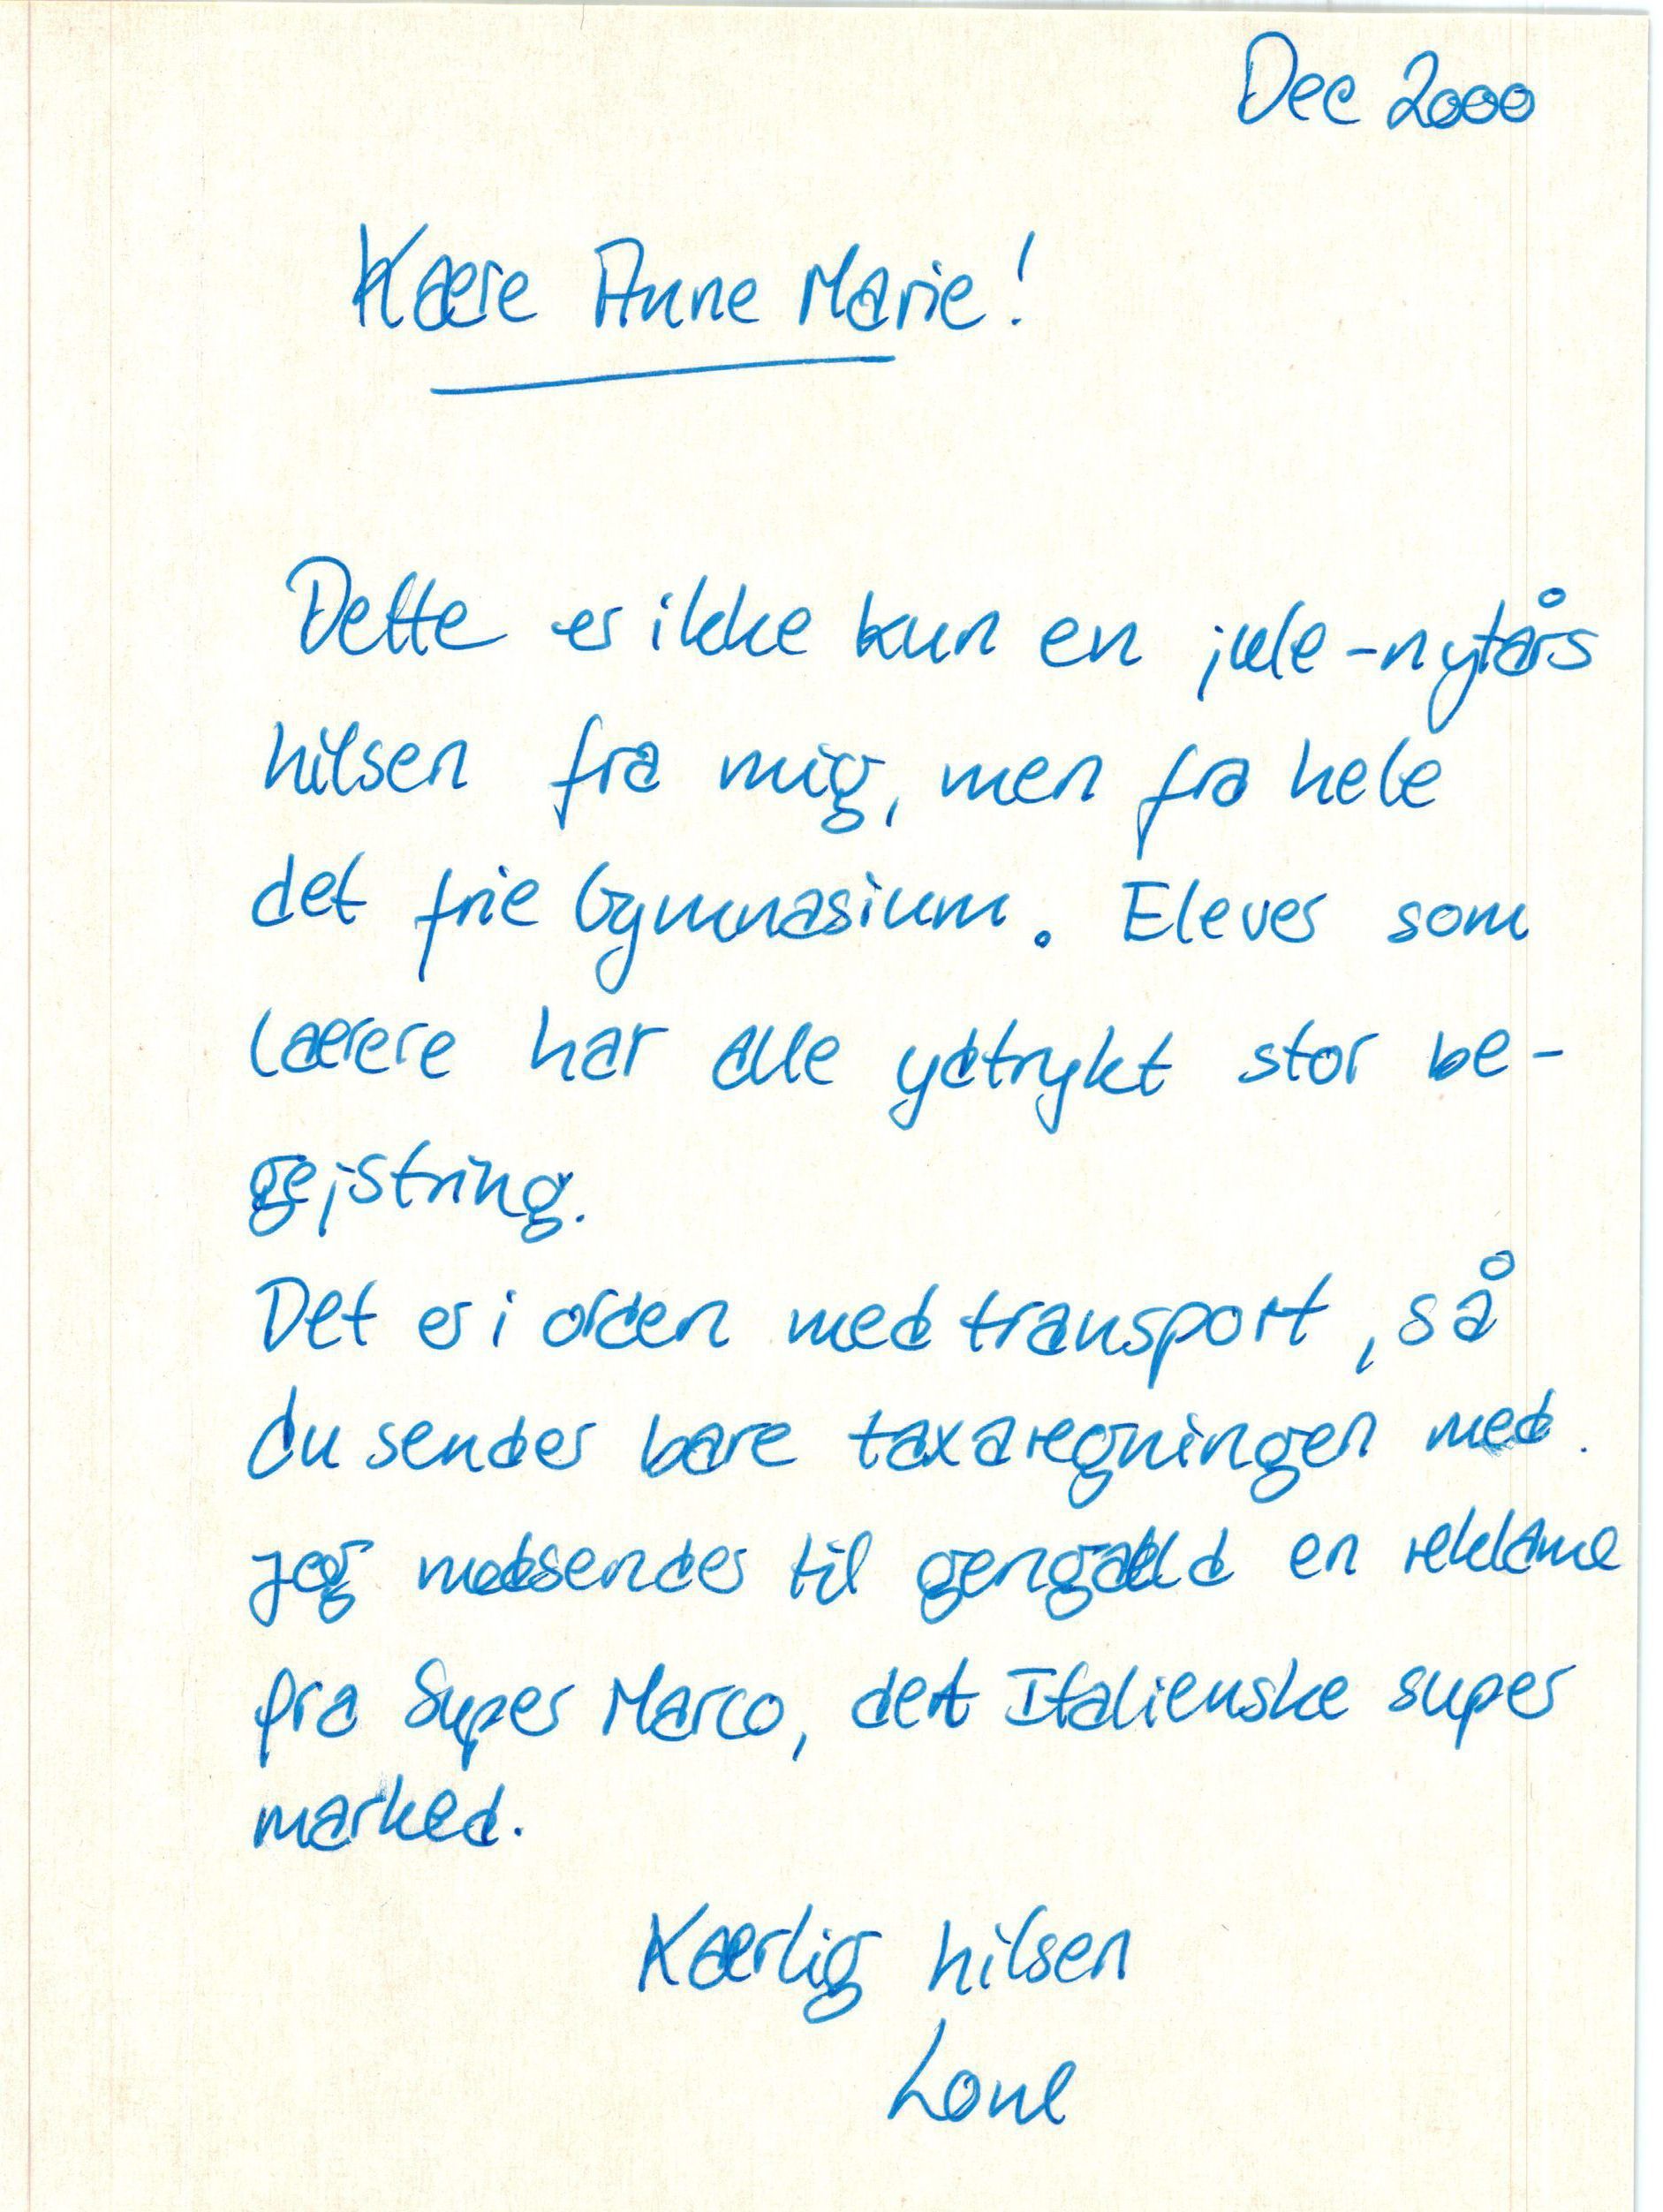 Dec 2000
Kære Anne Marie!
Dette er ikke kun en jule-nytårs
hilsen fra mig, men fra hele
det frie Gymnasium. Elever som
lærere har alle ydtrykt stor be-
gejstring.
Det er i orden med transport, så
du sender bare taxaregningen med.
Jeg medsender til gengæld en reklame
fra Super Marco, det Italienske super
marked.
Kærlig hilsen
Lone